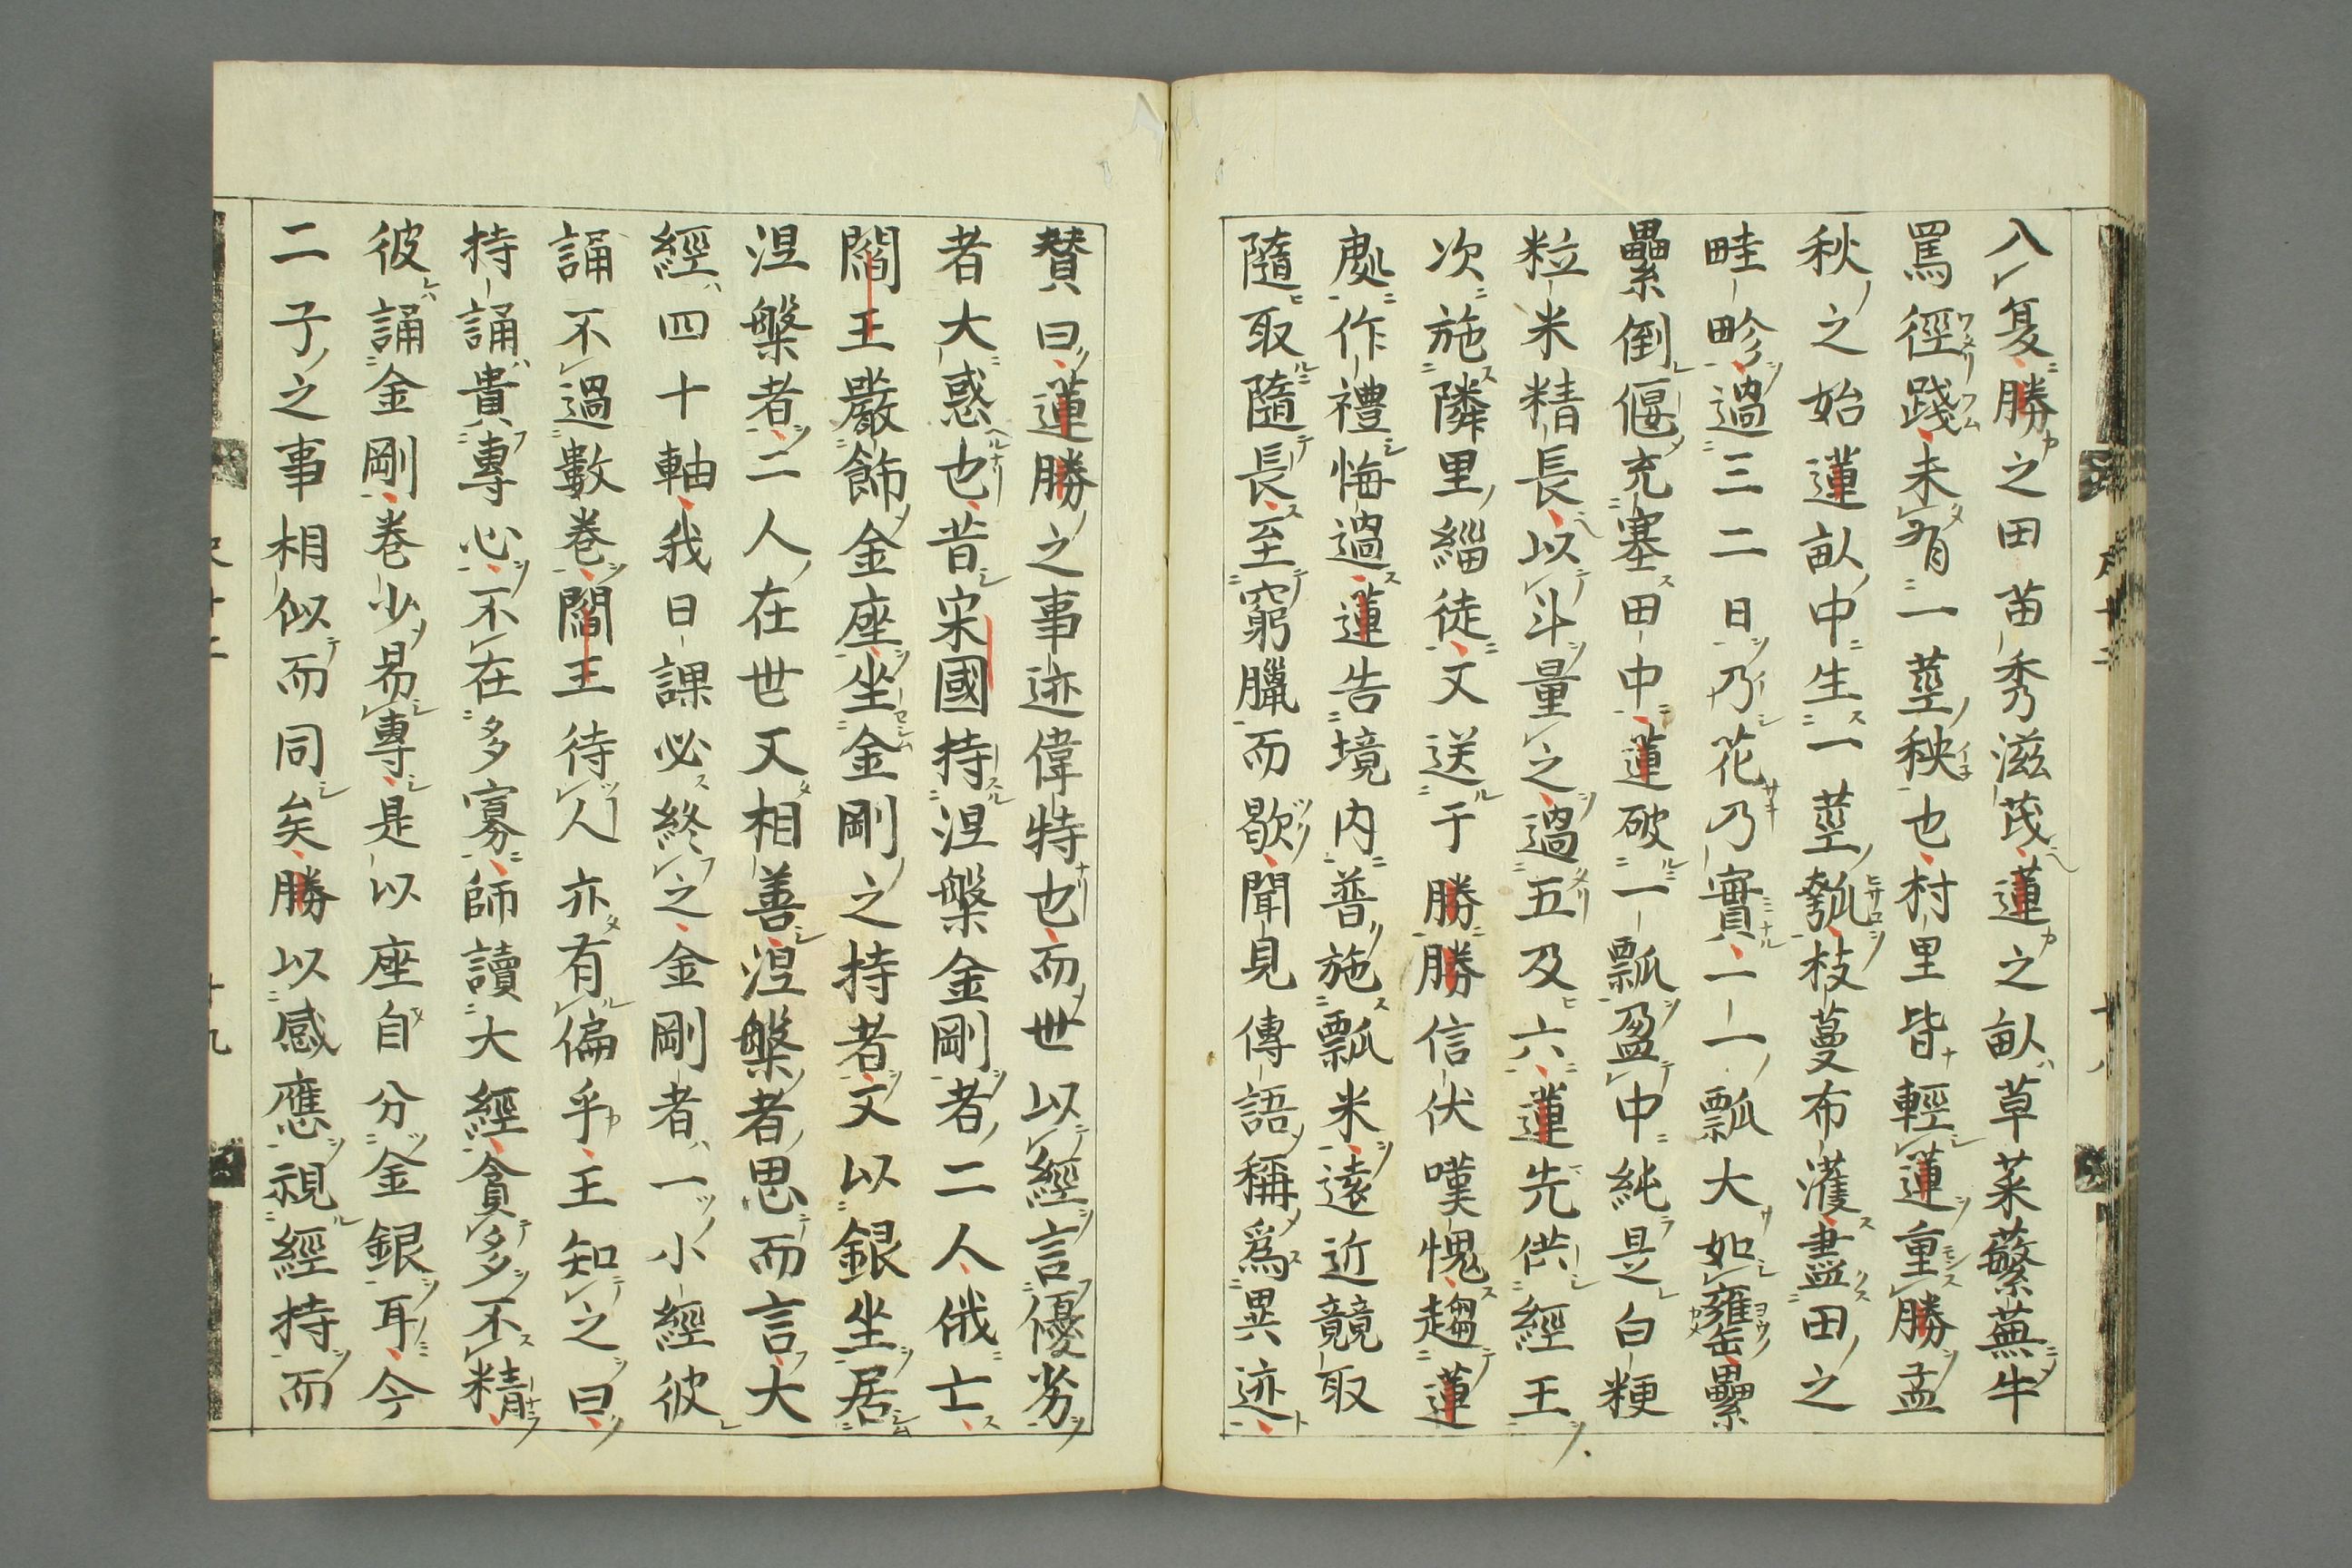 八复勝之田苗秀滋茂蓮之畝草菜蘩蕪牛
罵徑踐未有一莖秧也村里皆輕蓮重勝孟
秋之始蓮畝中生一莖瓠枝蔓布濩盡田之
畦畛過三二日乃花乃實一一瓢大如甕罍
纍倒偃充塞田中蓮破一瓢盈中純是白粳
粒米精長以斗量之過五及六蓮先供經王
次施隣里緇徒又送于勝勝信伏嘆愧趨蓮
處作禮悔過蓮告境内普施瓢米遠近競取
隨取隨長至窮臘而歇聞見傳語稱爲異迹
賛曰蓮勝之事迹偉特也而世以經言優劣
者大惑也昔宋國持涅槃金剛者二人俄亡
閻王嚴飾金座坐金剛之持者又以銀坐居
涅槃者二人在世又相善涅槃者思而言大
經四十軸我日課必終之金剛者一小經彼
誦不過數巻閻王待人亦有偏乎王知之曰
持誦貴專心不在多寡師讀大經貪多不精
彼誦金剛巻少易專是以座自分金銀耳今
二子之事相似而同矣勝以感應視經持而
十九